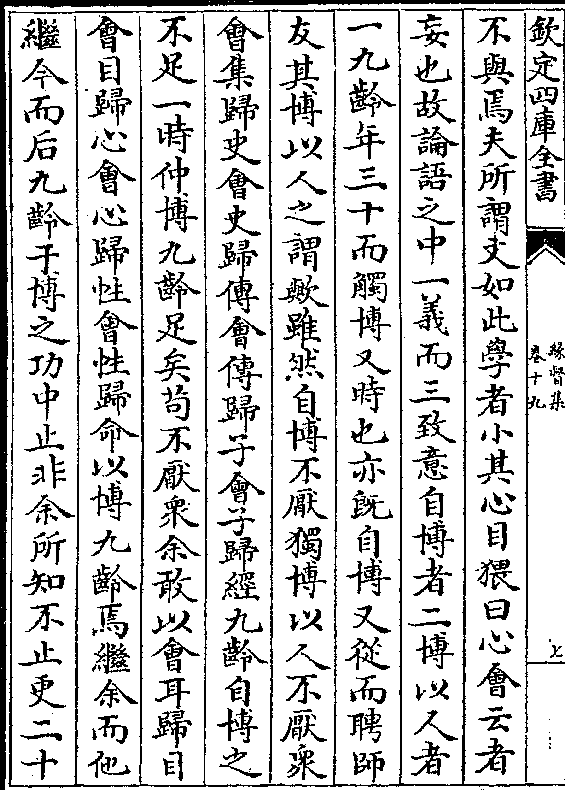 欽定四庫全書
緣督集
卷十九
上
不與焉夫所謂文如此學者小其心目猥曰心會云者
妄也故論語之中一義而三致意自博者二博以人者
一九齡年三十而觸博又時也亦既自博又從而聘師
友其博以人之謂歟雖然自博不厭獨博以人不厭衆
會集歸史會史歸傳會傳歸子會子歸經九齡自博之
不足一時仲博九齡足矣苟不厭衆余敢以會耳歸目
會目歸心會心歸性會性歸命以博九齡焉繼余而他
繼今而后九齡于博之功中止非余所知不止更二十